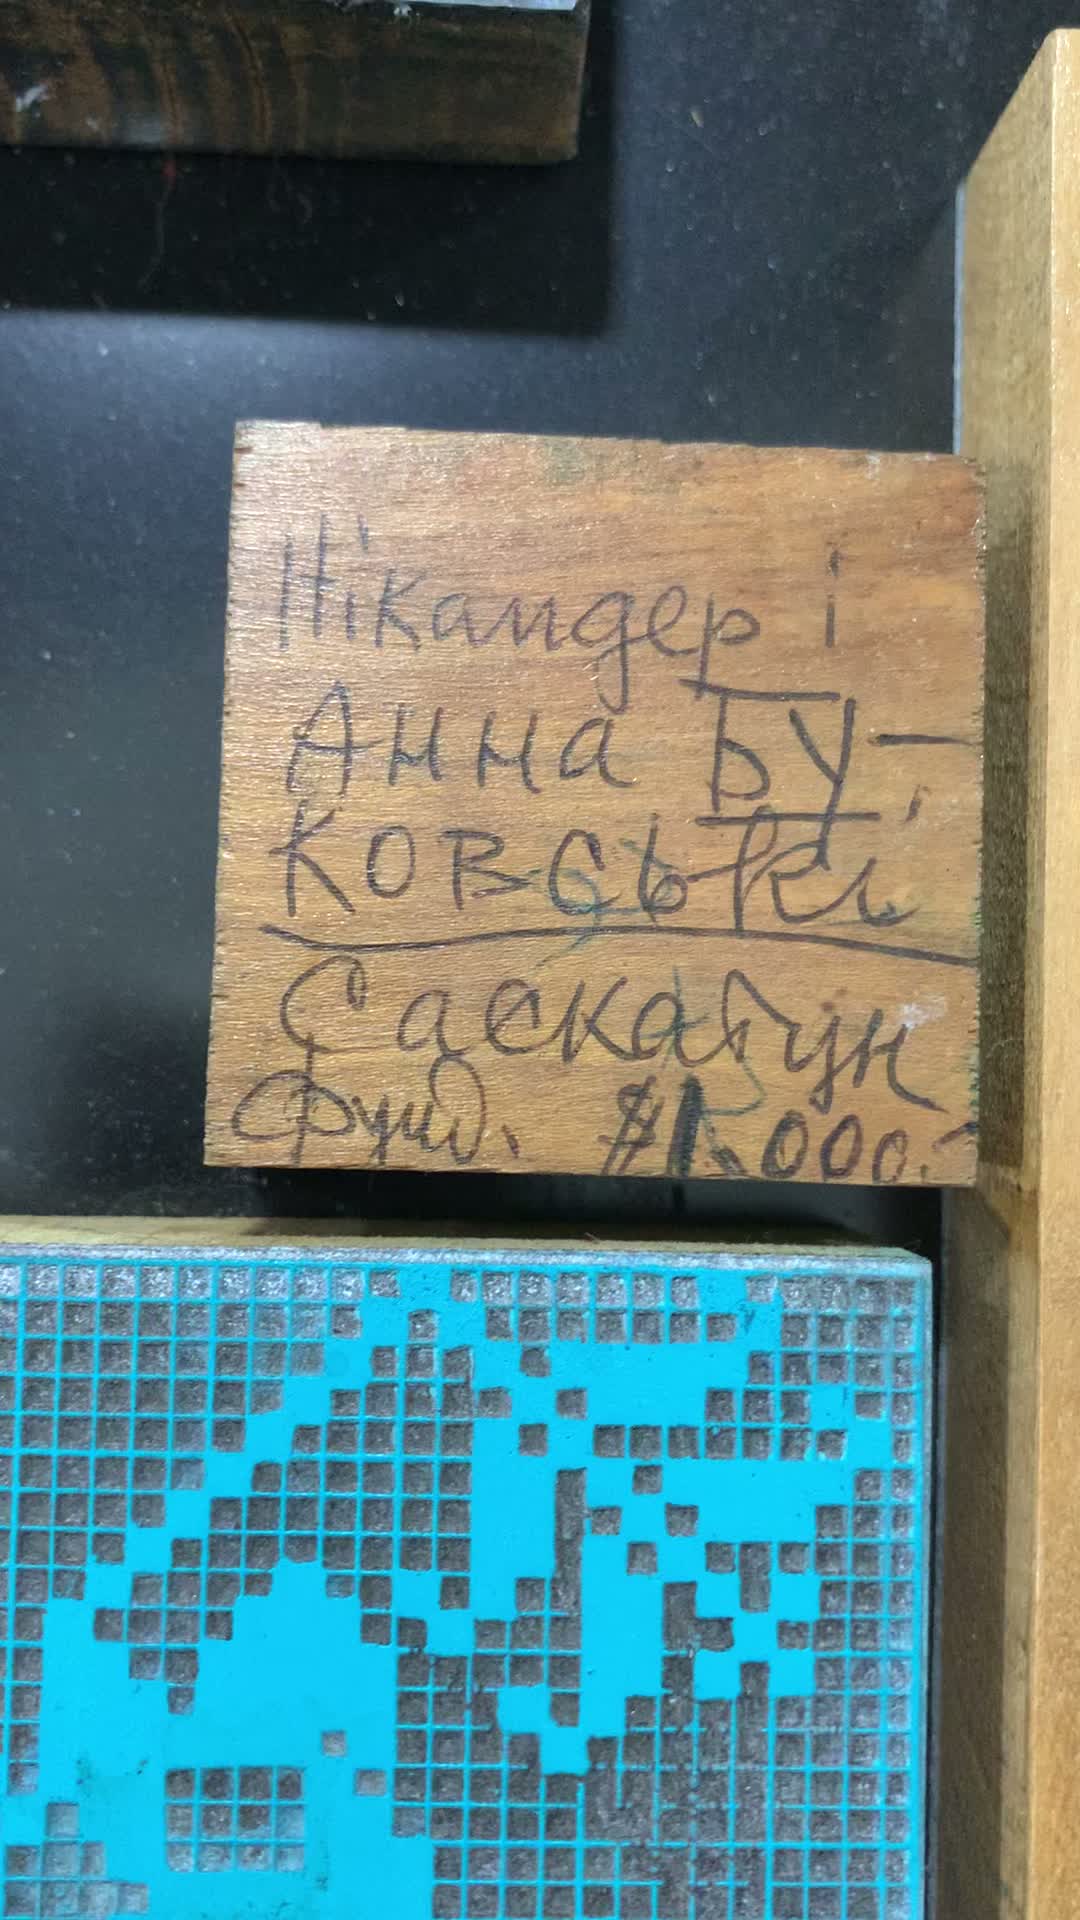 Нікандер і
Анна Бу-
ковські
Саскатун
Фунд. $1.000.-